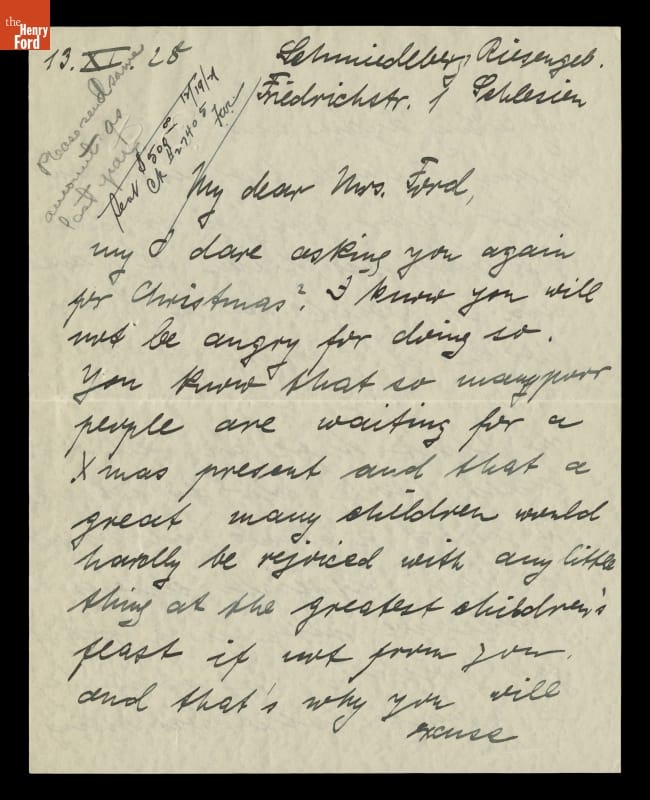 the
Henry
Ford
13. XI. 28
Schmiedeberg Riesengeb.
Friedrichstr. 1 Schlesien
Please send same
amount as
last year
Sent $500 00 12/19/28
Ck
My dear Mrs. Ford,
my I dare asking you again
for Christmas? I know you will
not be angry for doing so.
You know that so many poor
people are waiting for a
Xmas present and that a
great many children would
hardly be rejoiced with any little
thing at the greatest children's
feast if not from you.
and that's why you will
excuse